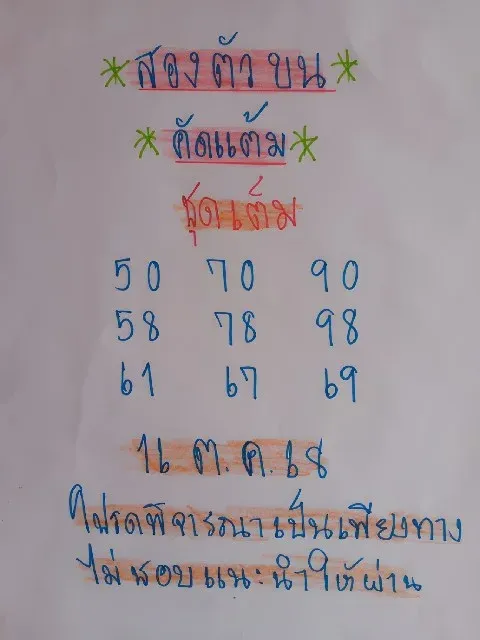 *สองตัวบน*
*คัดแต้ม*
ชุดเต็ม
50 70 90
58 78 98
61 67 69
ต.ค.68
โปรดพิจารณาเป็นเพียงทาง
ไม่ชอบแนะนำให้ผ่าน